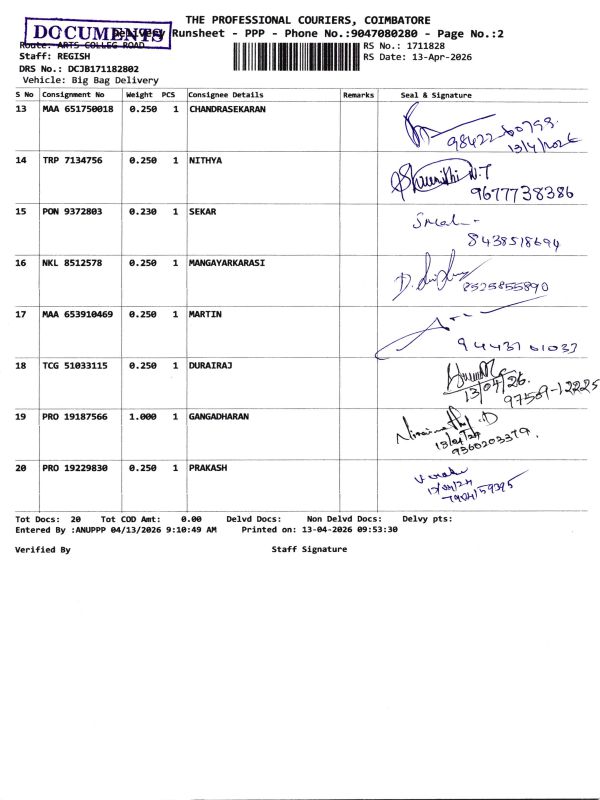 THE PROFESSIONAL COURIERS, COIMBATORE
DOCUMENTS
Delivery Runsheet - PPP - Phone No.:9047080280 - Page No.:2
Route: ARTS COLLEG ROAD
RS No.: 1711828
Staff: REGISH
RS Date: 13-Apr-2026
DRS No.: DCJB171182802
Vehicle: Big Bag Delivery
S No Consignment No Weight PCS Consignee Details Remarks Seal & Signature
13 MAA 651750018 0.250 1 CHANDRASEKARAN
13/4/2026
14 TRP 7134756 0.250 1 NITHYA
N.T
9677738386
15 PON 9372803 0.230 1 SEKAR
8438518694
16 NKL 8512578 0.250 1 MANGAYARKARASI
8525855890
17 MAA 653910469 0.250 1 MARTIN
18 TCG 51033115 0.250 1 DURAIRAJ
13/04/26.
97509-12225
19 PRO 19187566 1.000 1 GANGADHARAN
9360203379.
20 PRO 19229830 0.250 1 PRAKASH
Tot Docs: 20 Tot COD Amt: 0.00 Delvd Docs: Non Delvd Docs: Delvy pts:
Entered By :ANUPPP 04/13/2026 9:10:49 AM Printed on: 13-04-2026 09:53:30
Verified By Staff Signature